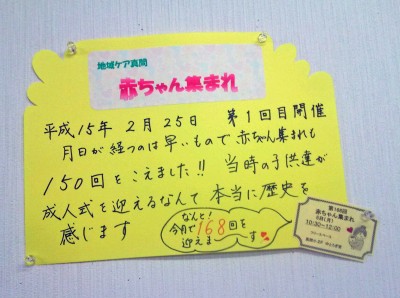 地域ケア真間
赤ちゃん集まれ
平成15年 2月25日 第1回目開催
月日が経つのは早いもので赤ちゃん集まれも
150回をこえました!! 当時の子供達が
成人式を迎えるなんて本当に歴史を
感じます
なんと!
今月で168回を
迎えま〜す
第168回
赤ちゃん集まれ
10:30〜12:00